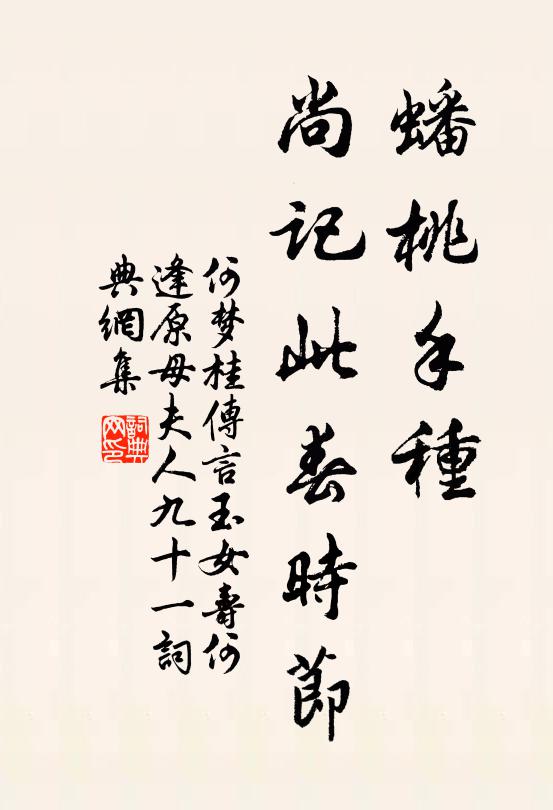 蟠桃手種
尚记此春時節
何梦桂傳言玉女壽何
逢原母夫人九十一詞
典網集
詞典
网印